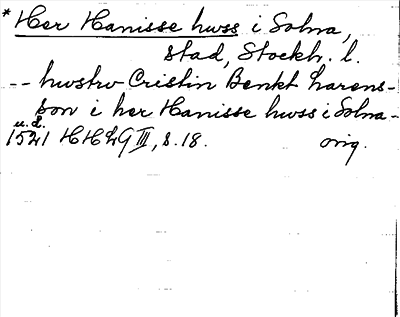 * Her Hanisse hwss i Solna,
stad, Stockh. l.
-- hwstrv Cristin Benkt Larens-
son i her Hanisse hwss i Solna -
u.d.
1521 HH LG III, s. 18. orig.